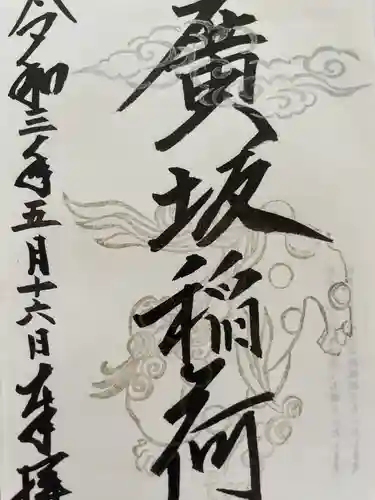 廣坂稲荷
令和三年五月十六日奉拝